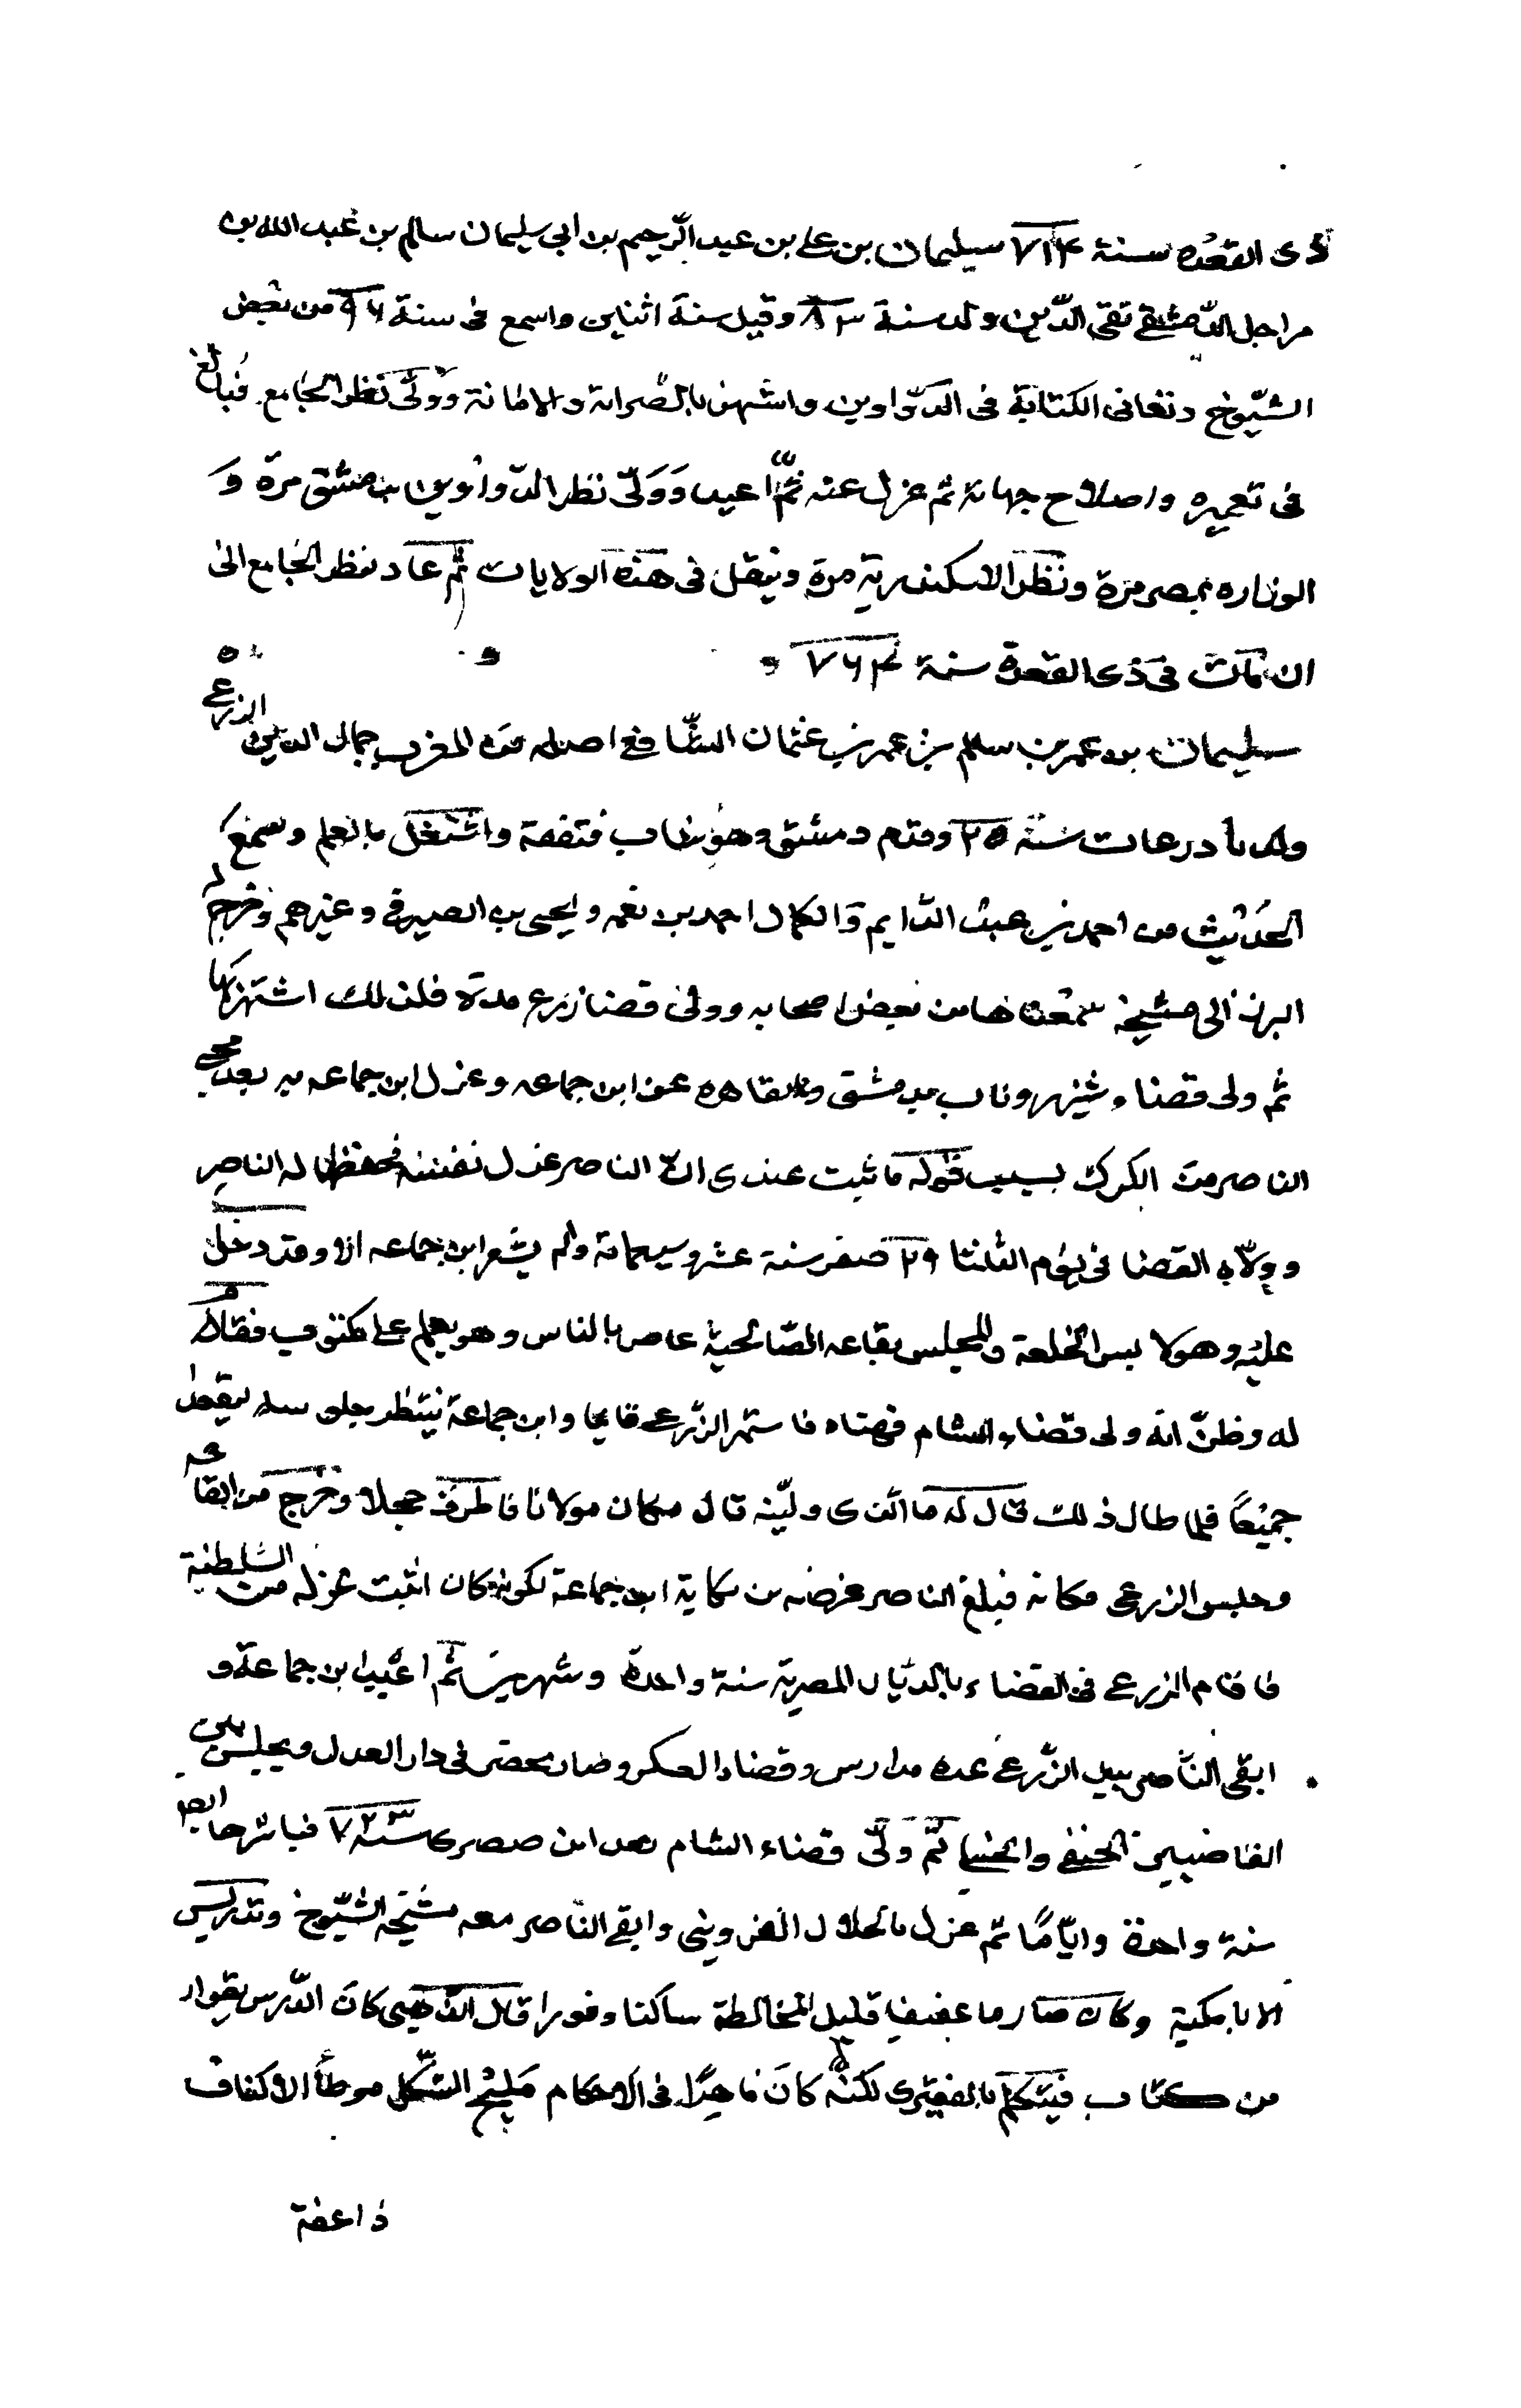 ذى القعده سنة ٧١۴ سيلمان بن على بن عبد الرّحيم بن ابي سليمان سالم بن عبد الله بن
مراجل الدّمشقے تقى الدّين ولد سنة ٨٣ وقيل سنة اثنين واسمع فى سنة ٩٦ من بعض
الشيّوخ وتعانى الكتابة فى الدوّاوين واشتهر بالصّرامة والامانة وولّى نظر الجامع فبالغ
فى تعميره واصلاح جهاته ثم عزل عنه ثمّ اعيد وَوَلّى نظر الدّواوين بدمشق مرة وَ
الوزاره بمصر مرة ونظر الاسكندرية مرة وتنقل فى هذه الولايات ثم عاد نظر الجامع الى
ان مات فى ذى القعدة سنة ٧٦۴
سليمان بن عمر بن سالم بن عمر بن عثمان الشّافع اصله من المغرب جمال الدين الزرعے
ولد بأدرعات سنة ٢٥ وقدم دمشق وهو شاب فتفقه واشتغل بالعلم وسمع
الحديث من احمد بن عبد الدّايم وَالكمال احمد بن نعمه ويحيى بن الصيرفے وغيرهم وخرج له
البرزالى مشيخة سمعناها من بعض اصحابه وولى قضا زرع مدة فلذلك اشتهر بها
ثم ولى قضاء شيزر وناب بدمشق والقاهره عن ابن جماعه وعزل ابن جماعه به بعد مجىء
الناصر من الكرك بسبب قوله ما ثبت عندى انّ الناصر عزل نفسه فحفظها له الناصر
وولّاه القضا فى يوم الثلثا ٢٩ صفر سنة عشر وسبعمائة ولم يشعر ابن جماعه الا وقد دخل
عليه وهو لابس الخلعة والمجلس بقاعه الصّالحية غاص بالناس وهو يعلم على مكتوب فقام
له وظنّ انه ولى قضاء الشام فهناه فاستمر الزّرعے قايما وابن جماعة ينتظر جلوسه ليقعدا
جميعًا فلما طال ذلك قال له ما الّذى وليّته قال مكان مولانا فاطرق خجلا وخرج من القاعه
وجلس الزرعى مكانه فبلغ الناصر غرضه من نكاية ابن جماعة لكونه كان اثبت عزله من السّلطنة
فاقام الزرعے فى القضاء بالدّيار المصرية سنة واحدة وشهرين ثم اعيد ابن جماعة و
ابقى النّاصر بيد الزّرعے عده مدارس وقضاء العسكر وصار يحضر فى دار العدل ويجلس بين
القاضيين الحنفے والحنبلے ثمّ ولّى قضاء الشام بعد ابن صصرى سنة ٧٢٣ فباشرها
سنة واحدة وايّامًا ثم عزل بالجلال القزوينى وابقے النّاصر معه مشيخه الشيّوخ وتدريس
الاتابكية وكان صارما عفيفا قليل المخالطة ساكنا وقورا قال الذهبى كان الدّرس يقراء
من كتاب فيتكلم بالفقيرى لكنّه كان ماجِدًا فى الاحكام مَليح الشّكل موطأ الاكناف
ذا عفة